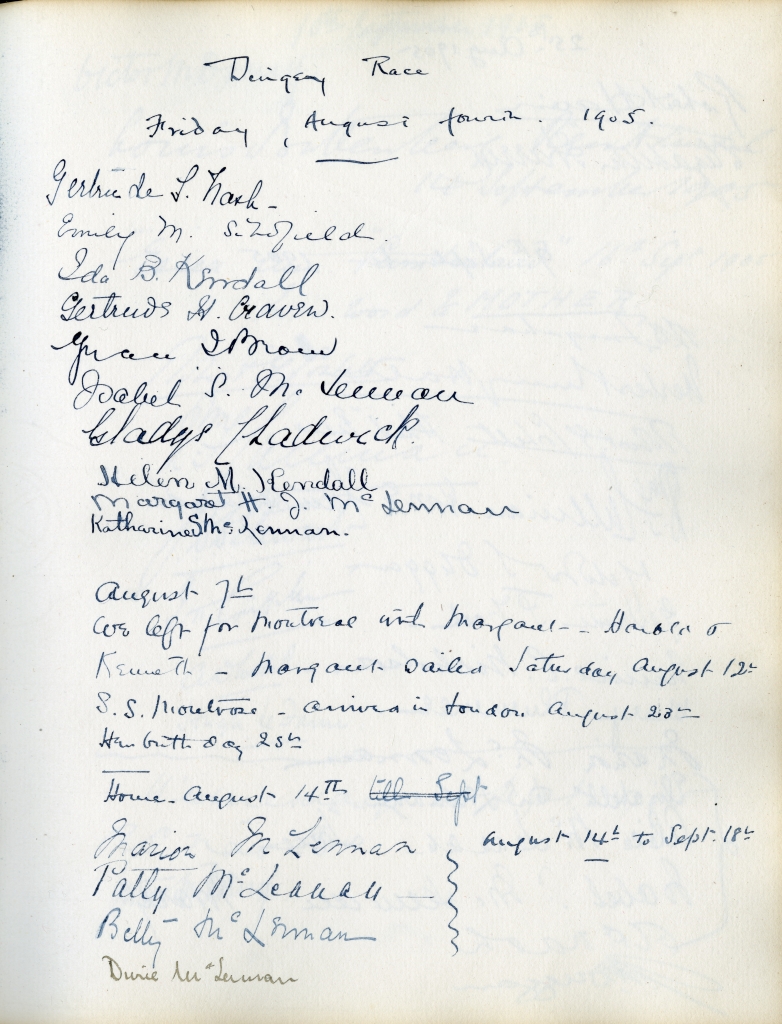 Dingey Race
Friday, August fourth. 1905.
Gertrude S. Nash -
Emily M. Schofield
Ida B. Kendall
Gertrude H. Craven.
Brown
Isabel S. McLennan
Gladys Chadwick.
Helen M. Kendall
Margaret H. J. McLennan
Katharine S McLennan.
August 7th
We left for Montreal with Margaret - Harold &
Kenneth - Margaret sailed Saturday August 12th
S.S. Montrose - arrived in London August 23rd
Her birthday 25th
Home - August 14TH till Sept
Marion McLennan August 14th to Sept. 18th
Patty McLennan
Betty McLennan
Durie McLennan